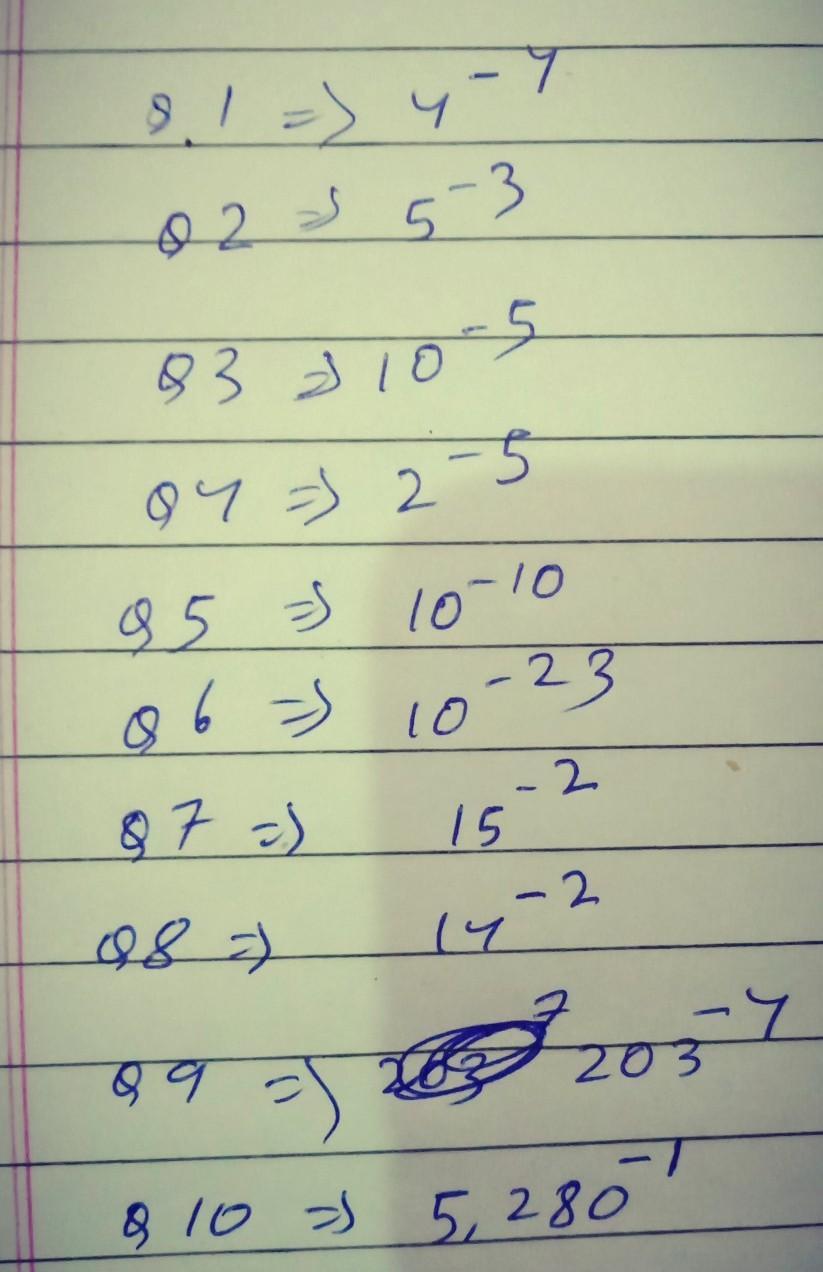 Q.1 => 4⁻⁴
Q2 => 5⁻³
Q3 => 10⁻⁵
Q4 => 2⁻⁵
Q5 => 10⁻¹⁰
Q6 => 10⁻²³
Q7 => 15⁻²
Q8 => 14⁻²
Q9 => 203⁻⁴
Q10 => 5,280⁻¹